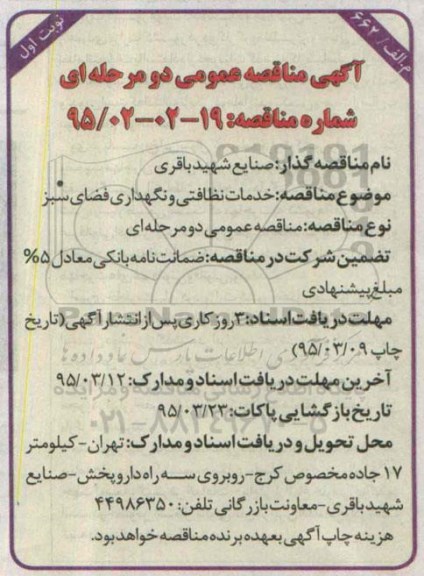 نوبت اول
م.الف/ ۶۶۲
آگهی مناقصه عمومی دو مرحله ای
شماره مناقصه: ۱۹-۰۲-۹۵/۰۲
نام مناقصه گذار: صنایع شهید باقری
موضوع مناقصه: خدمات نظافتی و نگهداری فضای سبز
نوع مناقصه: مناقصه عمومی دو مرحله ای
تضمین شرکت در مناقصه: ضمانت نامه بانکی معادل ۵%
مبلغ پیشنهادی
مهلت دریافت اسناد: ۳ روز کاری پس از انتشار آگهی (تاریخ
چاپ ۹۵/۰۳/۰۹)
آخرین مهلت دریافت اسناد و مدارک: ۹۵/۰۳/۱۲
تاریخ بازگشایی پاکات: ۹۵/۰۳/۲۳
محل تحویل و دریافت اسناد و مدارک: تهران- کیلومتر
۱۷ جاده مخصوص کرج- روبروی سه راه داروپخش- صنایع
شهید باقری- معاونت بازرگانی تلفن: ۴۴۹۸۶۳۵۰
هزینه چاپ آگهی بعهده برنده مناقصه خواهد بود.
۰۲۱-۸۸۳۴۹۶۷۰-۵